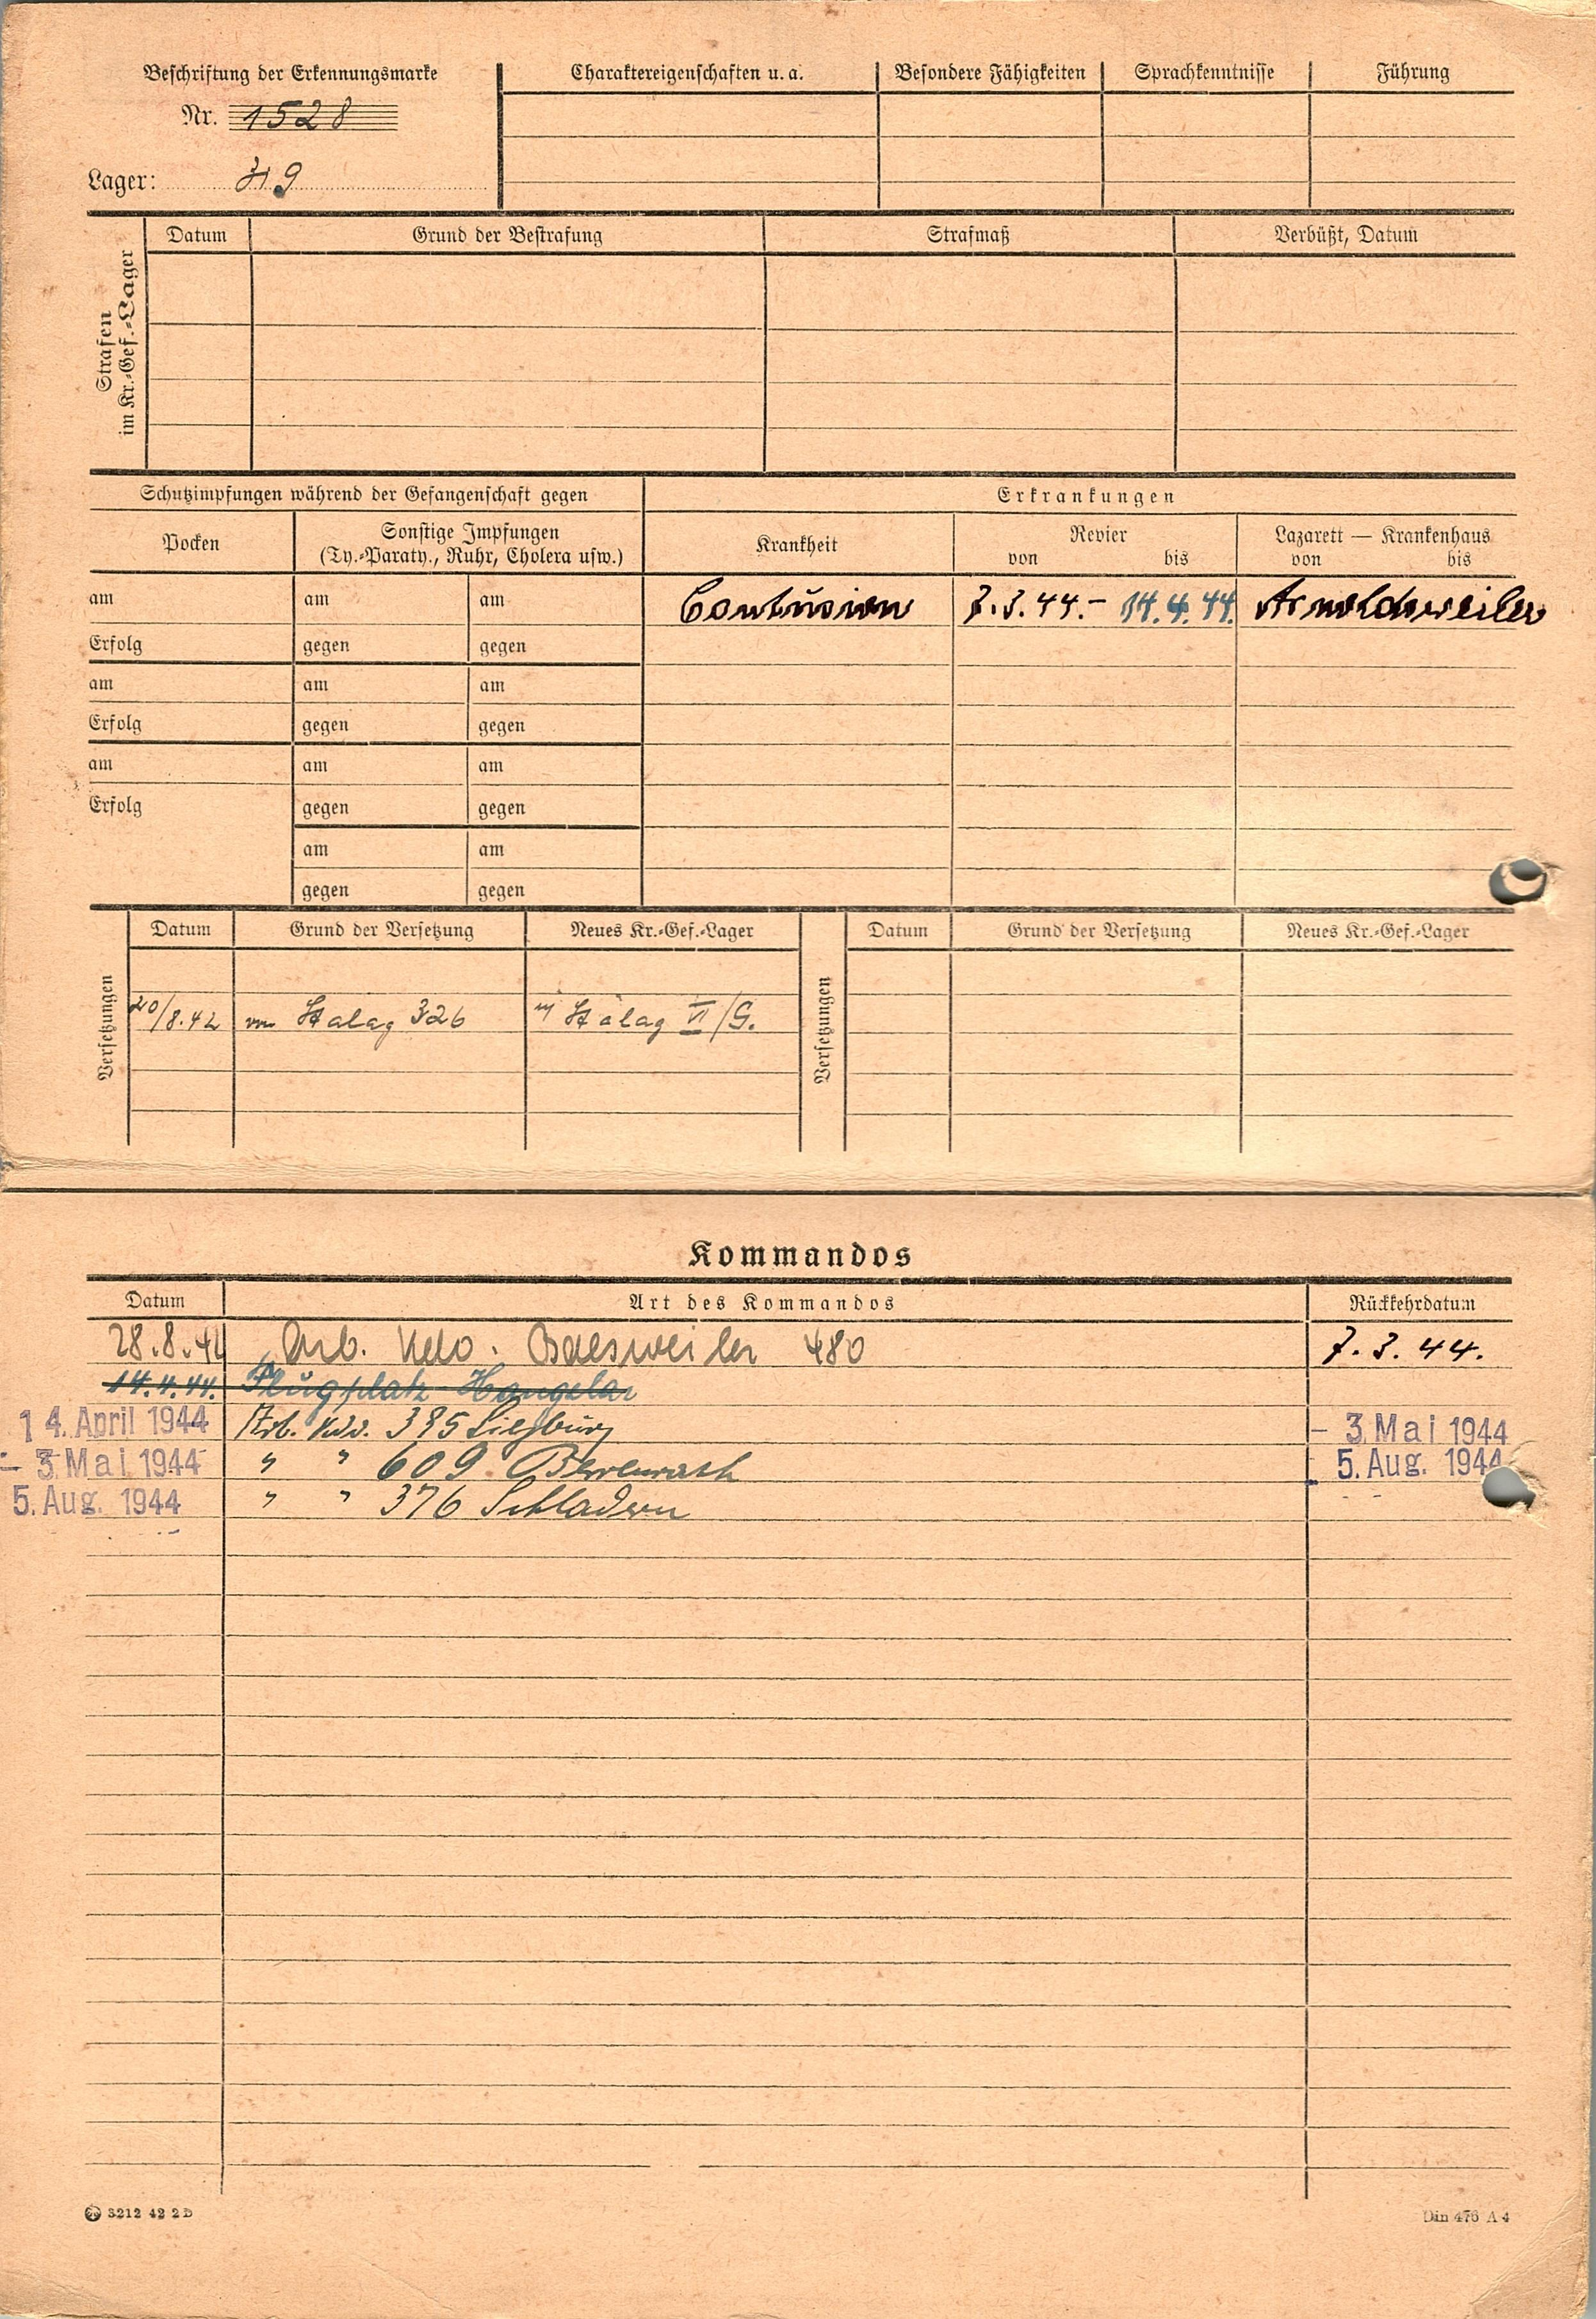 Beschriftung der Erkennungsmarke
Nr. 1528
Lager:
Charaktereigenschaften u. a.
Besondere Fähigkeiten
Sprachkenntnisse
Führung
Strafen
im Kr.-Gef.-Lager
Datum
Grund der Bestrafung
Strafmaß
Verbüßt, Datum
Schutzimpfungen während der Gefangenschaft gegen
Erkrankungen
Pocken
Sonstige Impfungen
(Ty.-Paraty., Ruhr, Cholera usw.)
Krankheit
Revier
von bis
Lazarett — Krankenhaus
von bis
am am am Contusion 7.3.44.- 14.4.44. Arnoldsweiler
Erfolg gegen gegen
am am am
Erfolg gegen gegen
am am am
Erfolg gegen gegen
am am
gegen gegen
Versetzungen
Datum Grund der Versetzung Neues Kr.-Gef.-Lager
20/8.42 von Stalag 326 in Stalag VI/G.
Versetzungen
Datum Grund der Versetzung Neues Kr.-Gef.-Lager
Kommandos
Datum Art des Kommandos Rückkehrdatum
28.8.42 Arb. Kdo. Baesweiler 480 7.3.44.
14.4.44. Flugplatz Hangelar
14. April 1944 Arb. Kdo. 385 Siegburg - 3. Mai 1944
- 3. Mai 1944 " " 609 Berrenrath 5. Aug. 1944
5. Aug. 1944 " " 376 Schladern
3212 42 2 D
Din 476 A 4